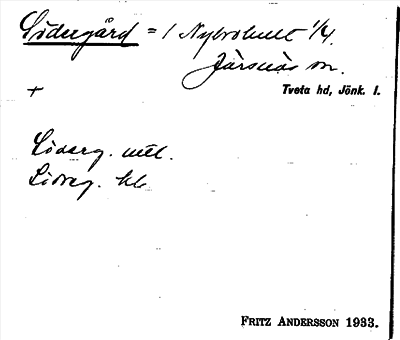 Södergård = 1 Nybrohult 1/4.
Järsnäs sn.
+ Tveta hd, Jönk. l.
Söderg. utt.
Söderg. kb
FRITZ ANDERSSON 1933.